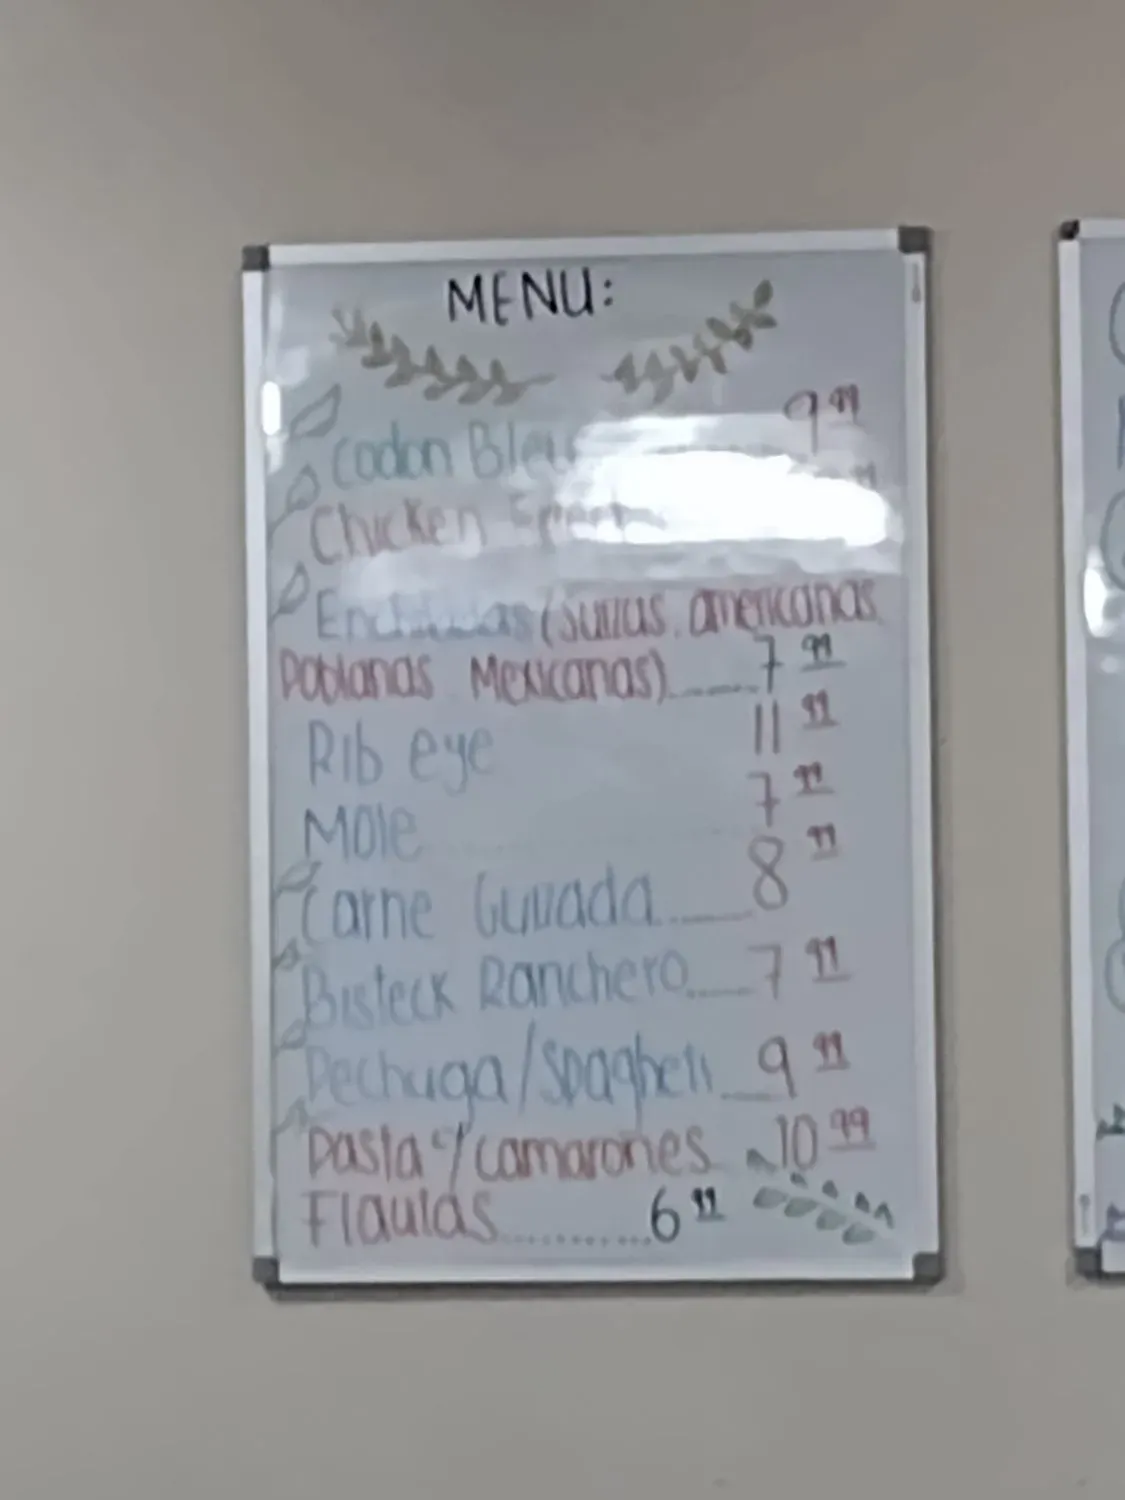 MENU:
Codon Bleu 9 99
Chicken
Enchiladas (Suizas, americanas,
Poblanas, Mexicanas)........7 99
Rib eye 11 99
Mole 7 99
Carne Guisada........8 99
Bisteck Ranchero.......7 99
Pechuga/Spagheti ....9 99
Pasta c/ camarones 10 99
Flautas............6 99